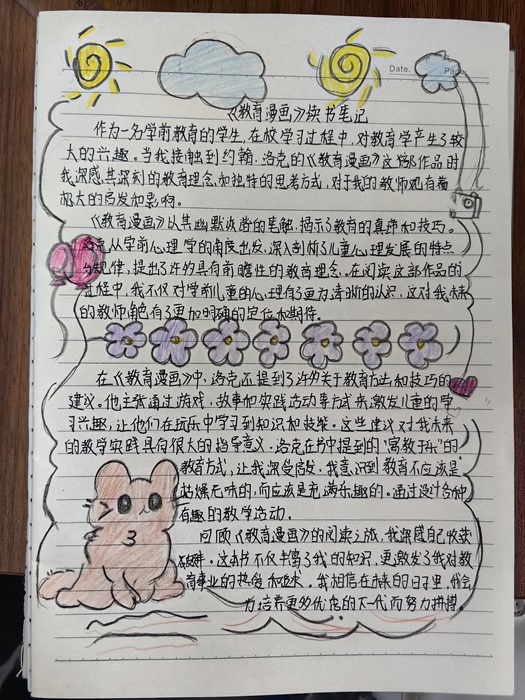 Date.
《教育漫画》读书笔记
作为一名学前教育的学生,在校学习过程中,对教育学产生了较
大的兴趣。当我接触到约翰.洛克的《教育漫画》这部作品时
我深感其深刻的教育理念和独特的思考方式,对于我的教师观有着
极大的启发和影响。
《教育漫画》以其幽默诙谐的笔触,揭示了教育的真谛和技巧。
洛克从学前心理学的角度出发,深入剖析了儿童心理发展的特点
与规律,提出了许多具有前瞻性的教育理念。在阅读这部作品的
过程中,我不仅对学前儿童的心理有了更为清晰的认识,这对我未来
的教师角色有了更加明确的定位和期待。
在《教育漫画》中,洛克还提到了许多关于教育方法和技巧的
建议。他主张通过游戏、故事和实践活动等方式来激发儿童的学
习兴趣,让他们在玩乐中学习到知识和技能。这些建议对我未来
的教学实践具有很大的指导意义。洛克在书中提到的“寓教于乐”的
教育方式,让我深受启发。我意识到教育不应该是
枯燥无味的,而应该是充满乐趣的。通过设计各种
有趣的教学活动。
回顾《教育漫画》的阅读之旅,我深感自己收获
。这本书不仅丰富了我的知识,更激发了我对教
育事业的热爱和追求。我相信在未来的日子里,我会
为培养更多优秀的下一代而努力拼搏。